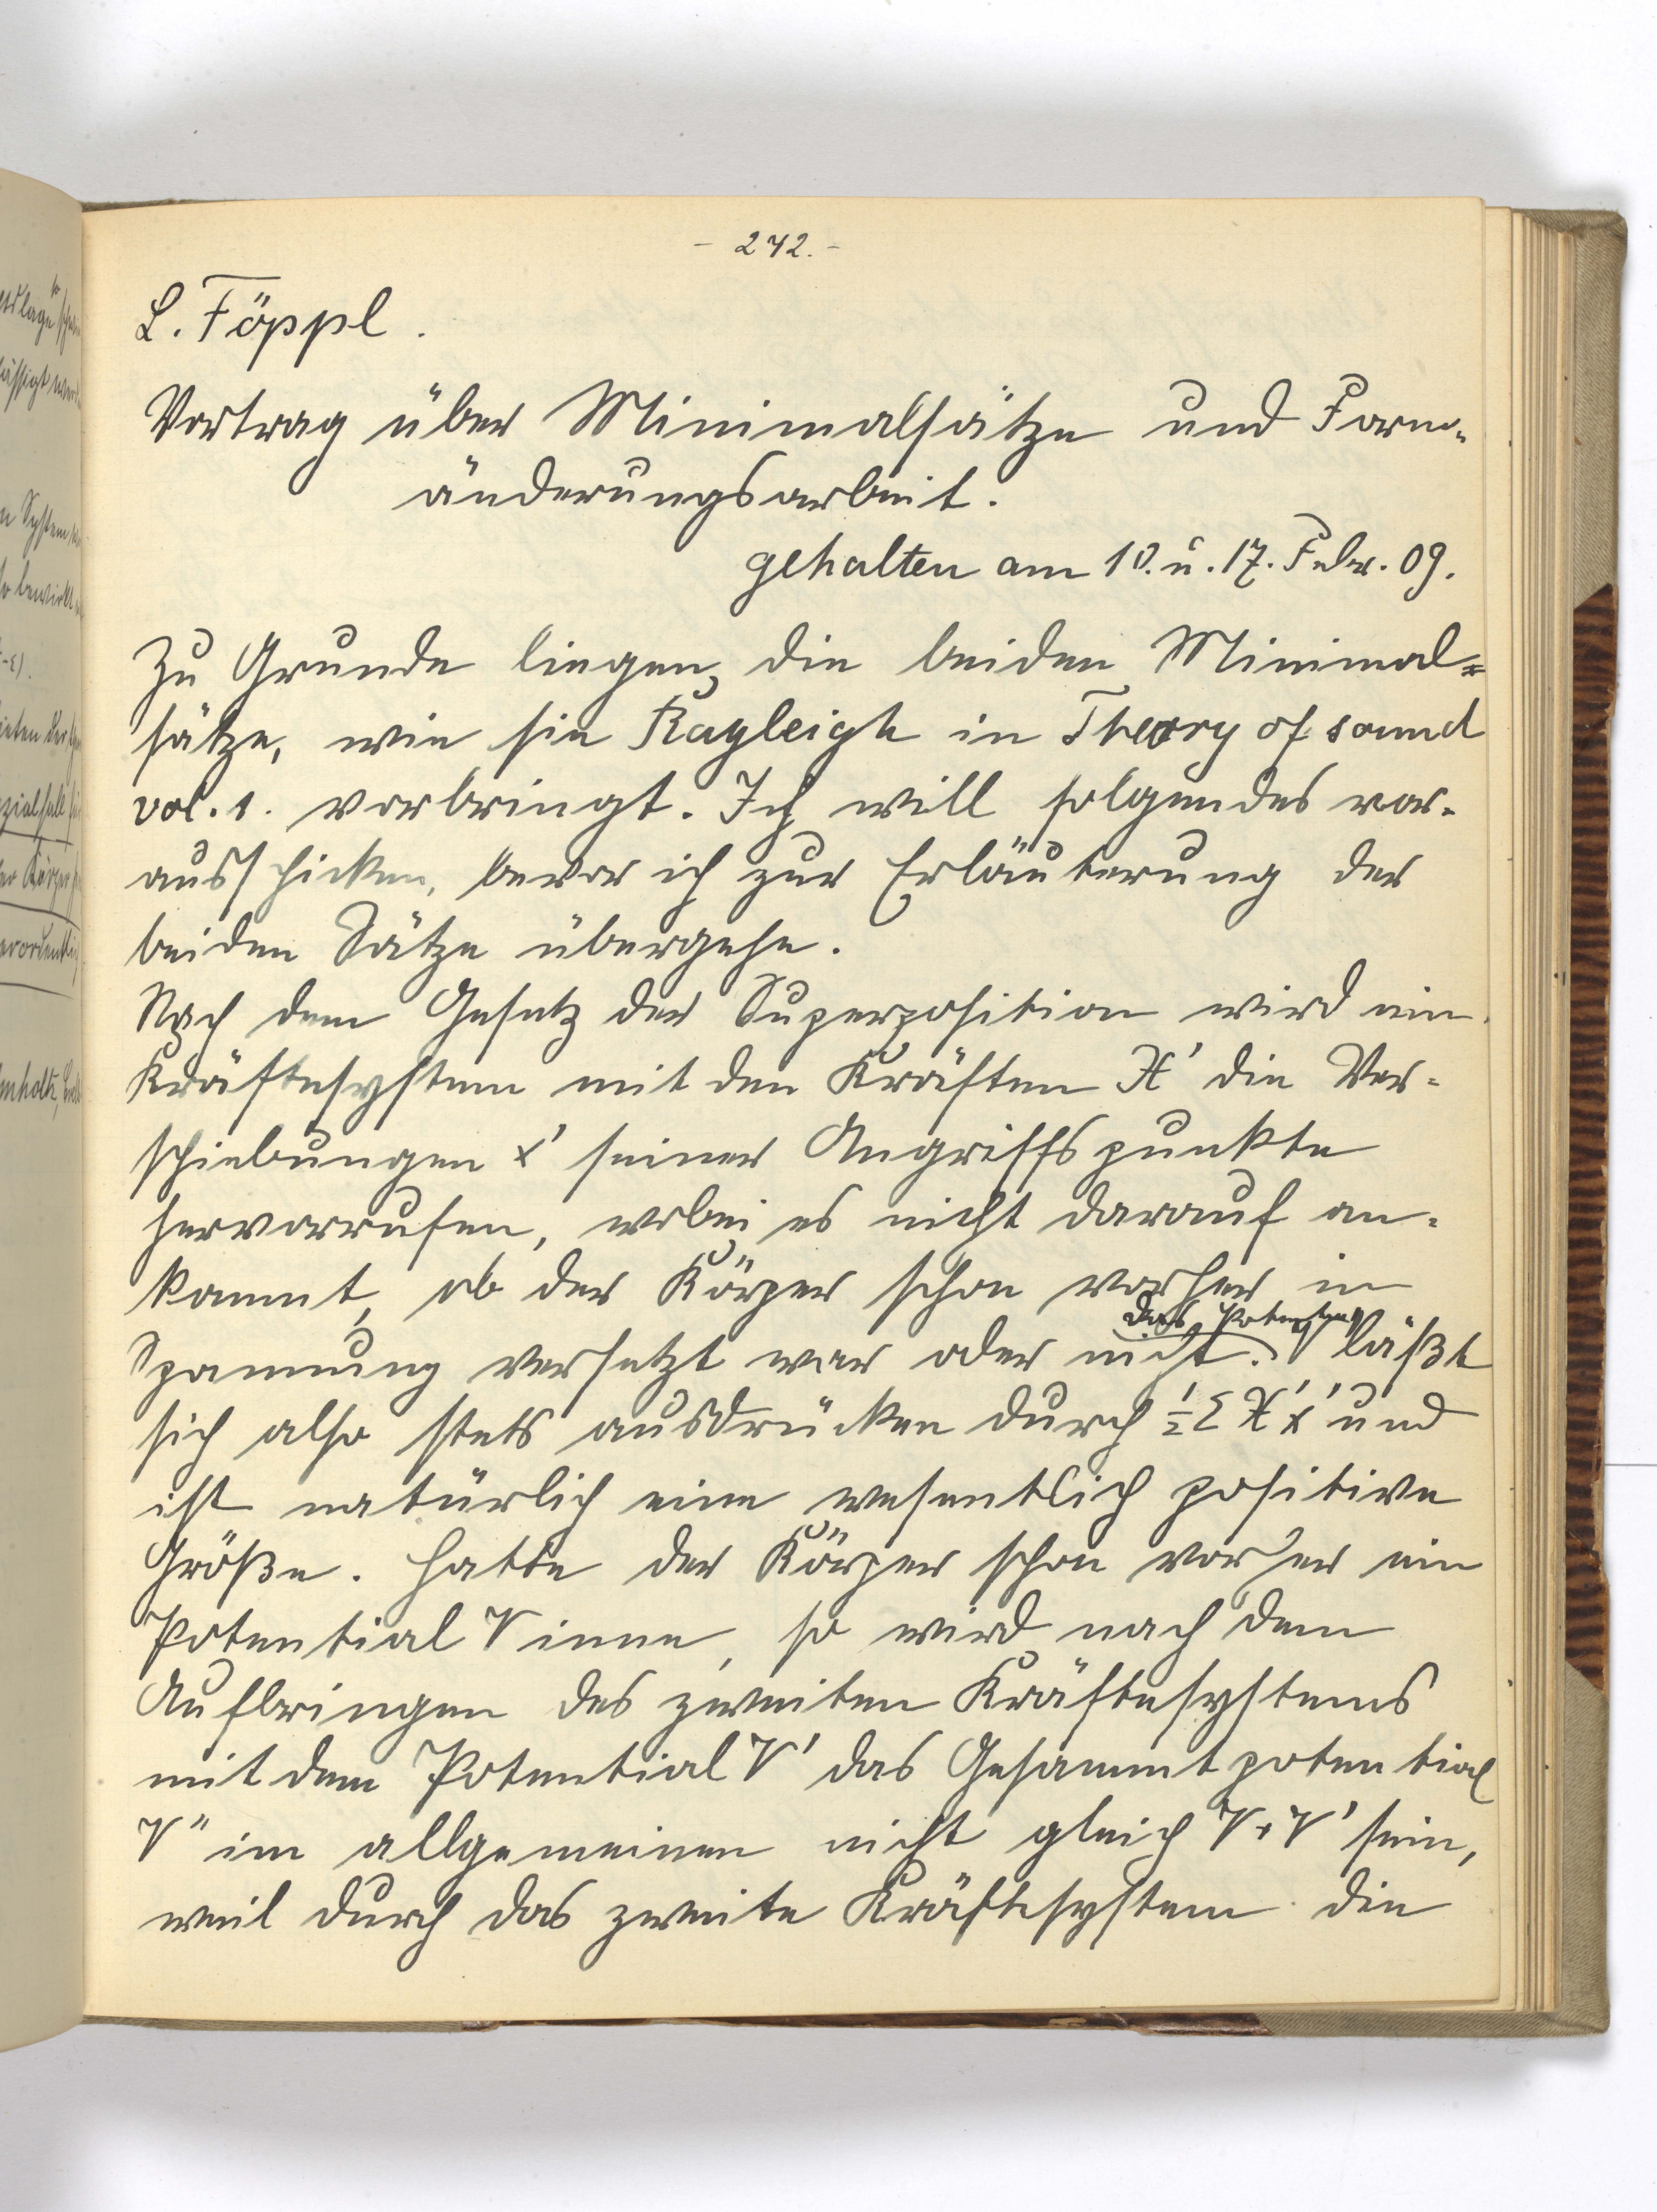 - 242. -
L. Föppl.
Vortrag über Minimalsätze und Form-
änderungsarbeit.
gehalten am 10. u. 17. Febr. 09.
Zu Grunde liegen die beiden Minimal=
sätze, wie sie Rayleigh in Theory of sound
vol. 1. vorbringt. Ich will folgendes vor-
ausschicken, bevor ich zur Erläuterung der
beiden Sätze übergehe.
Nach dem Gesetz der Superposition wird ein
Kräftesystem mit den Kräften X' die Ver-
schiebungen x' seiner Angriffspunkte
hervorrufen, wobei es nicht darauf an-
kommt, ob der Körper schon vorher in
Spannung versetzt war oder nicht. Das Potential läßt
sich also stets ausdrücken durch ½ Σ X'x' und
ist natürlich eine wesentlich positive
Größe. Hatte der Körper schon vorher ein
Potential V inne, so wird nach dem
Aufbringen des zweiten Kräftesystems
mit dem Potential V' das Gesammtpotential
V" im allgemeinen nicht gleich V+V' sein,
weil durch das zweite Kräftesystem die